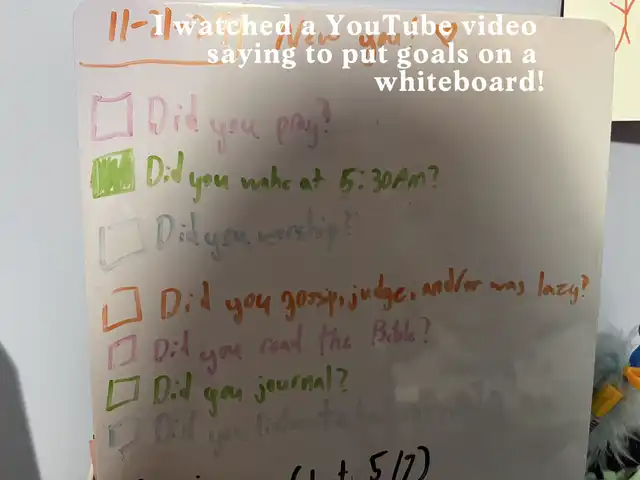 I watched a YouTube video
saying to put goals on a
whiteboard!
11-21
Did you pray?
Did you wake at 5:30AM?
Did you worship?
Did you gossip, judge, and/or was lazy?
Did you read the Bible?
Did you journal?
Did you listen to
5/7)